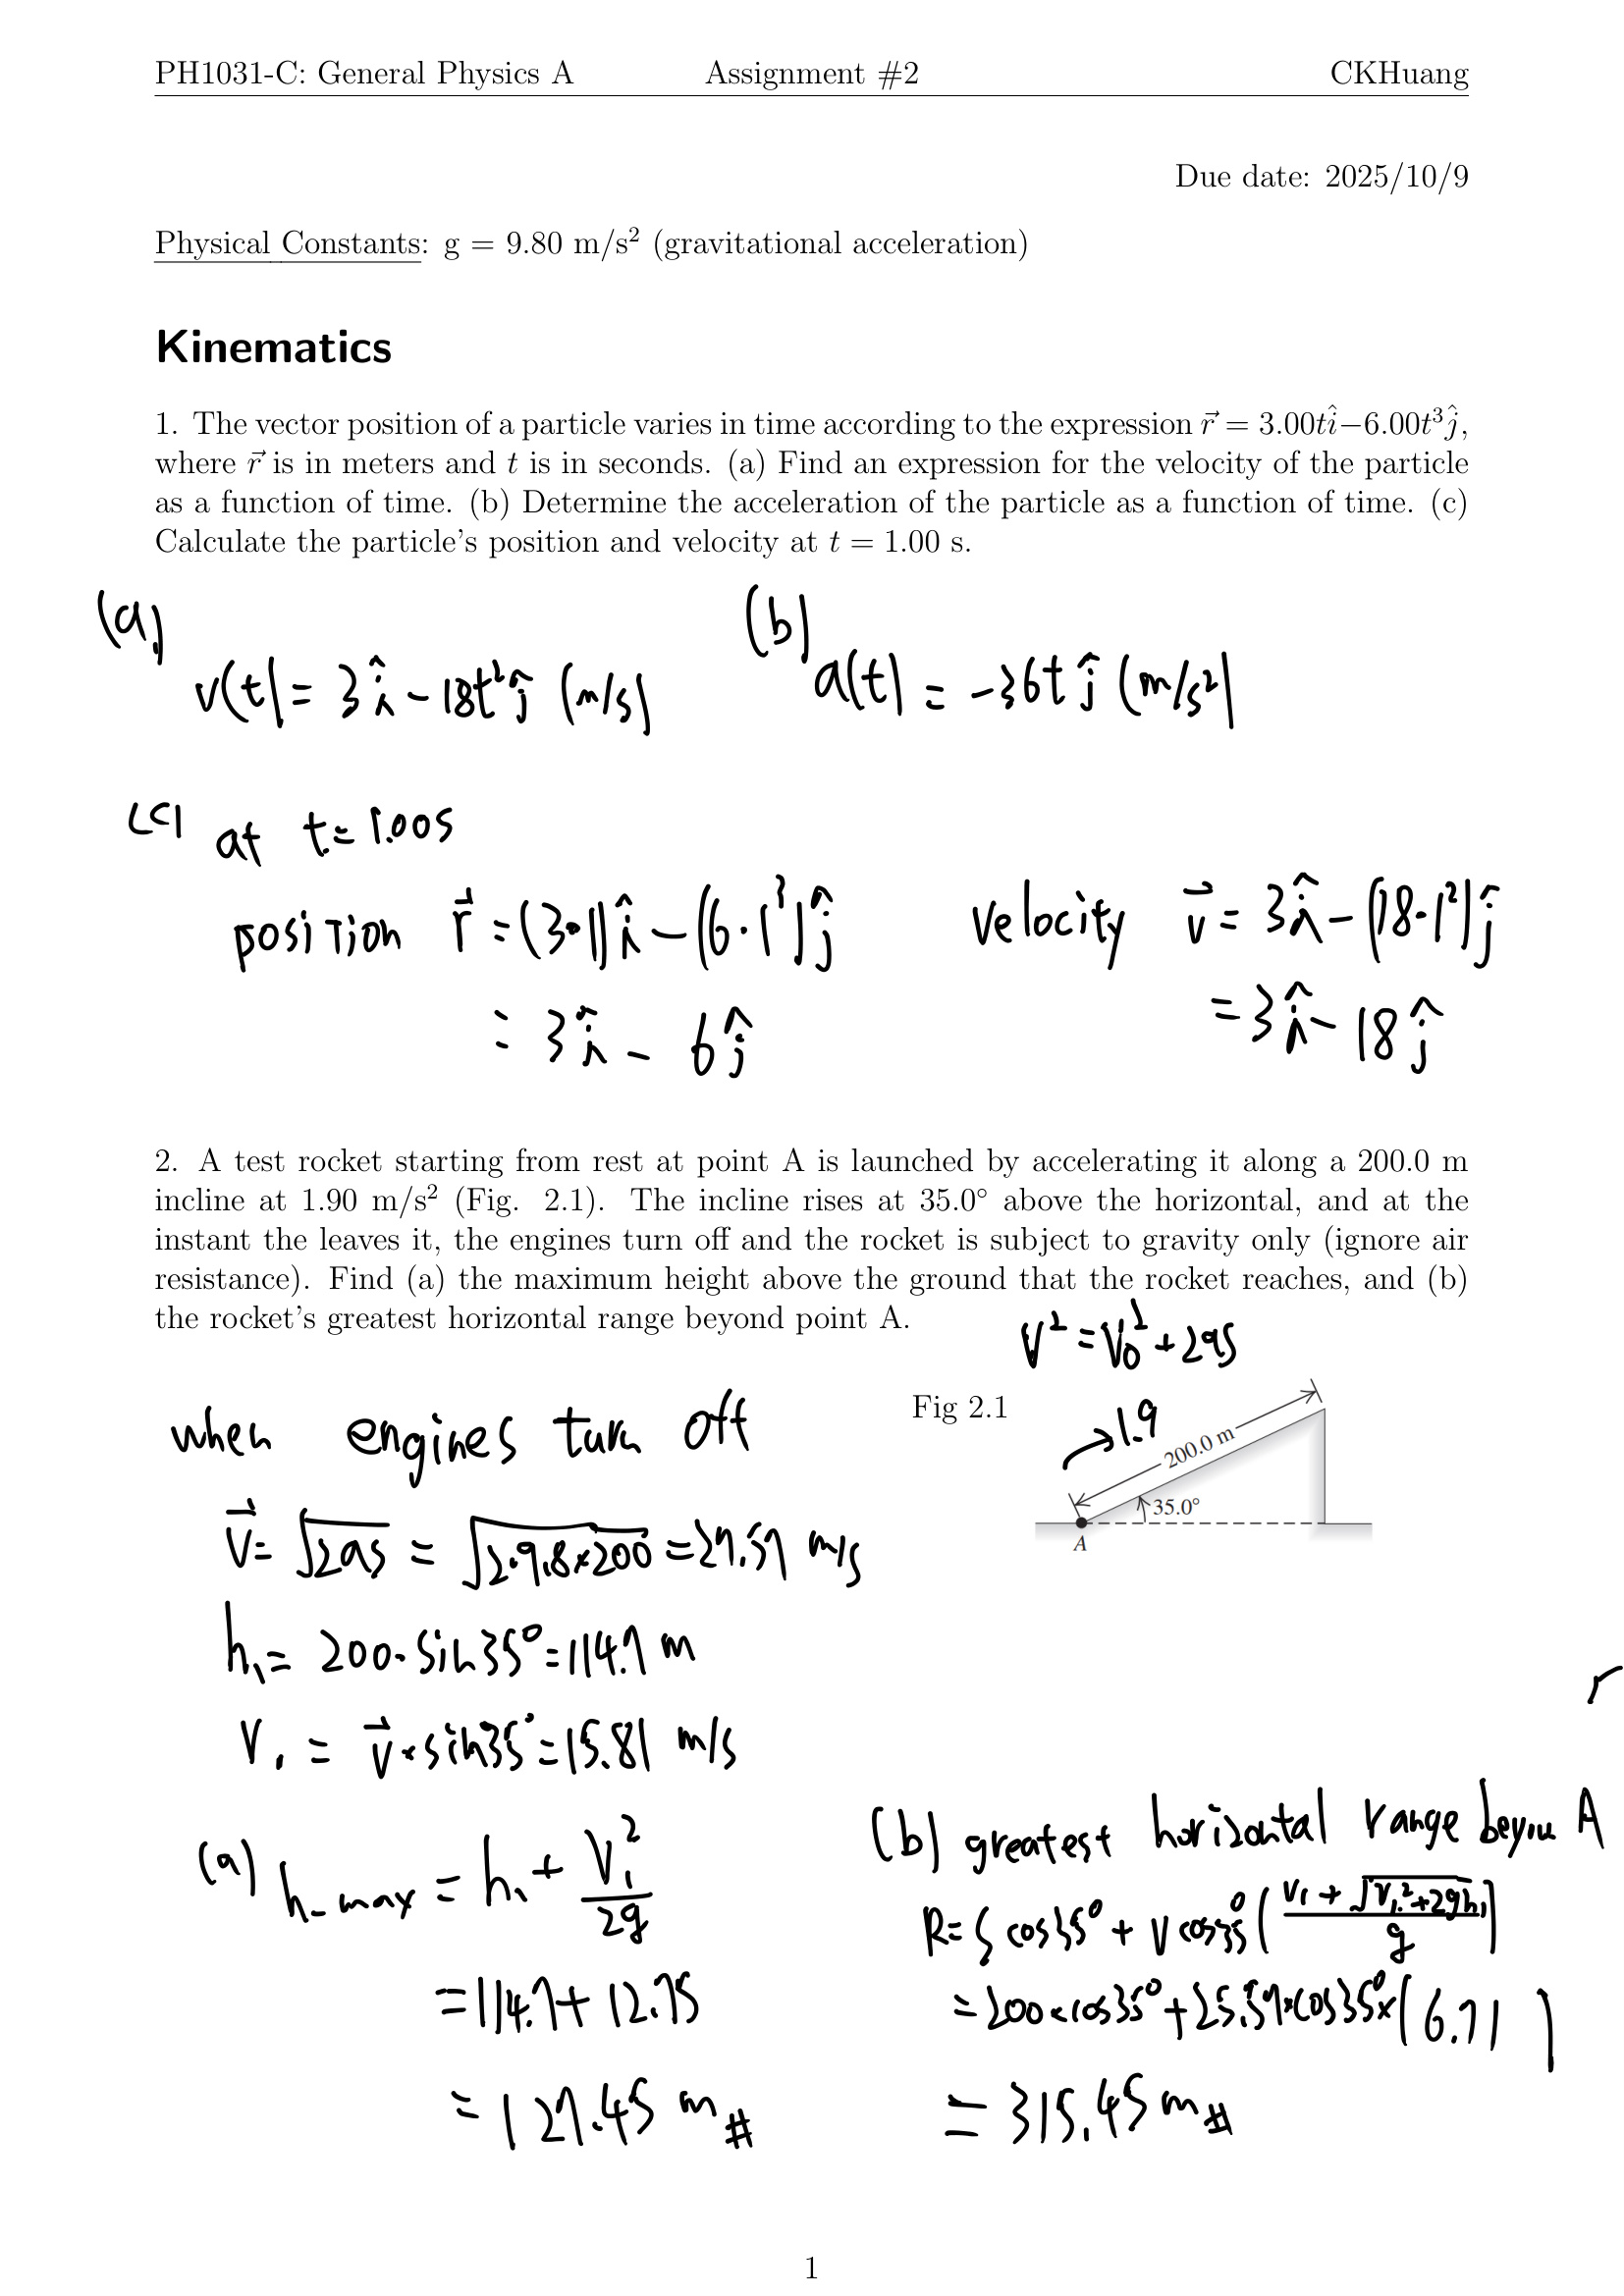 PH1031-C: General Physics A Assignment #2 CKHuang
Due date: 2025/10/9
Physical Constants: g = 9.80 m/s² (gravitational acceleration)
Kinematics
1. The vector position of a particle varies in time according to the expression r⃗ = 3.00tî−6.00t³ĵ,
where r⃗ is in meters and t is in seconds. (a) Find an expression for the velocity of the particle
as a function of time. (b) Determine the acceleration of the particle as a function of time. (c)
Calculate the particle's position and velocity at t = 1.00 s.
(a) (b)
v(t) = 3î − 18t²ĵ (m/s) a(t) = −36tĵ (m/s²)
(c) at t = 1.00s
position r⃗ = (3·1)î − (6·1³)ĵ velocity v⃗ = 3î − (18·1²)ĵ
= 3î − 6ĵ = 3î − 18ĵ
2. A test rocket starting from rest at point A is launched by accelerating it along a 200.0 m
incline at 1.90 m/s² (Fig. 2.1). The incline rises at 35.0° above the horizontal, and at the
instant the leaves it, the engines turn off and the rocket is subject to gravity only (ignore air
resistance). Find (a) the maximum height above the ground that the rocket reaches, and (b)
the rocket's greatest horizontal range beyond point A.
V² = V₀² + 2as
Fig 2.1
1.9
200.0 m
35.0°
A
when engines turn off
v⃗ = √2as = √2·9.8×200 = 27.57 m/s
h₁ = 200·sin35° = 114.7 m
V₁ = v⃗×sin35° = 15.81 m/s
(a) h_max = h₁ + V₁²/2g
= 114.7 + 12.75
= 127.45 m #
(b) greatest horizontal range A
R = S cos35° + V cos35° (V₁ + √V₁²+2gh₁ / g)
= 200×cos35° + 25.57×cos35°×(6.71)
= 315.45 m #
1